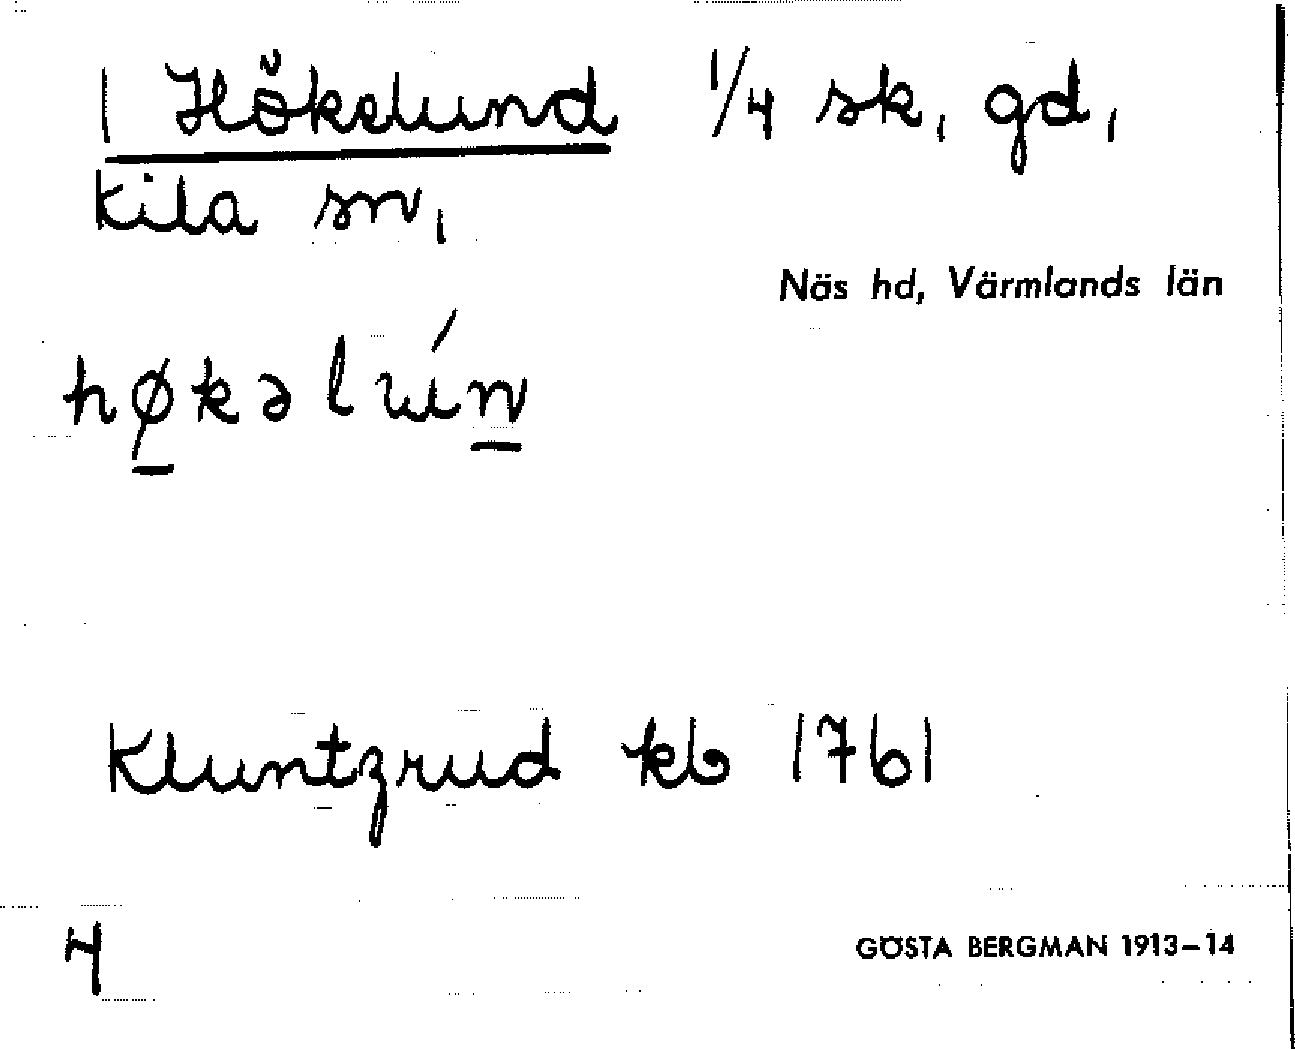 1 Hökelund 1/4 sk, gd,
Kila sn,
Näs hd, Värmlands län
høkəlún
Kluntzrud kb 1761
4
GÖSTA BERGMAN 1913–14